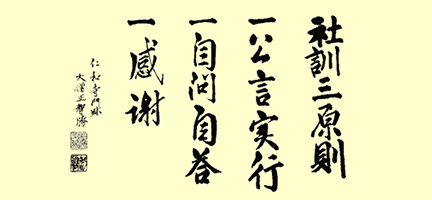 社訓三原則
一公言実行
一自問自答
一感謝
仁和寺門跡
大僧正智勝